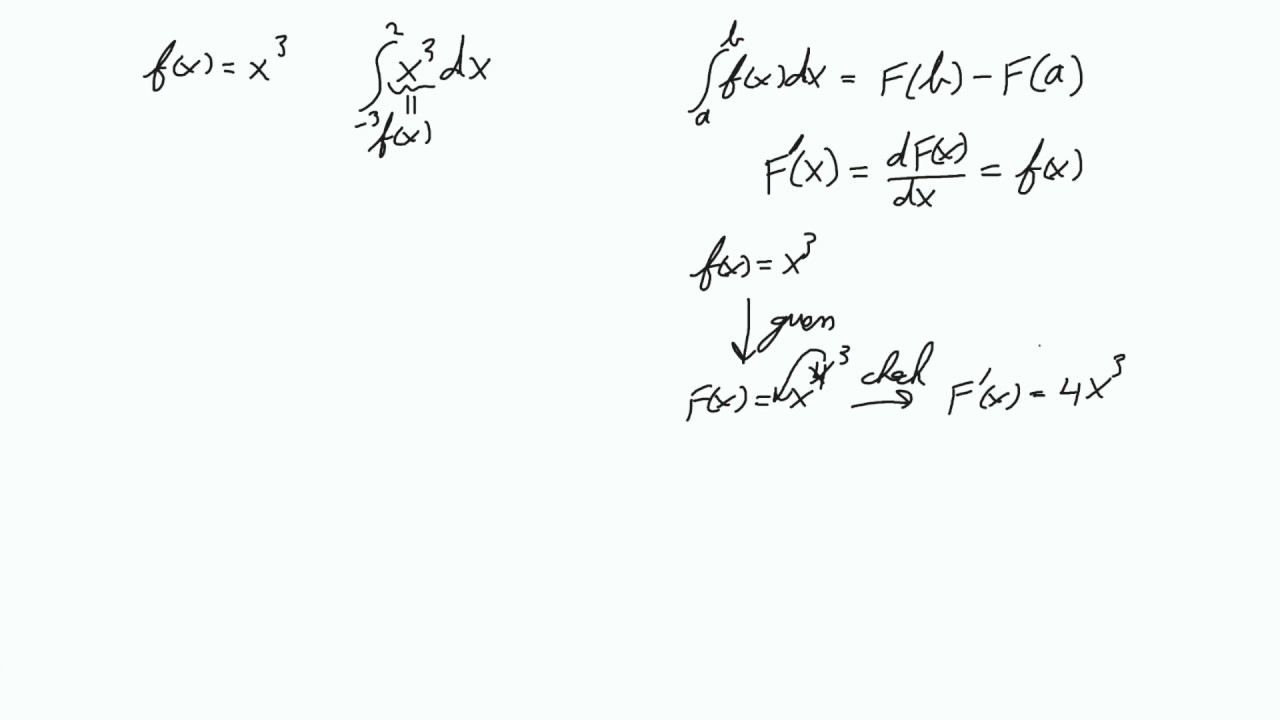 f(x) = x³
∫₋₃² x³ dx
= f(x)
∫ₐᵇ f(x)dx = F(b) − F(a)
F'(x) = dF(x)/dx = f(x)
f(x) = x³
↓ guess
F(x) = x⁴ ³ check → F'(x) = 4x³